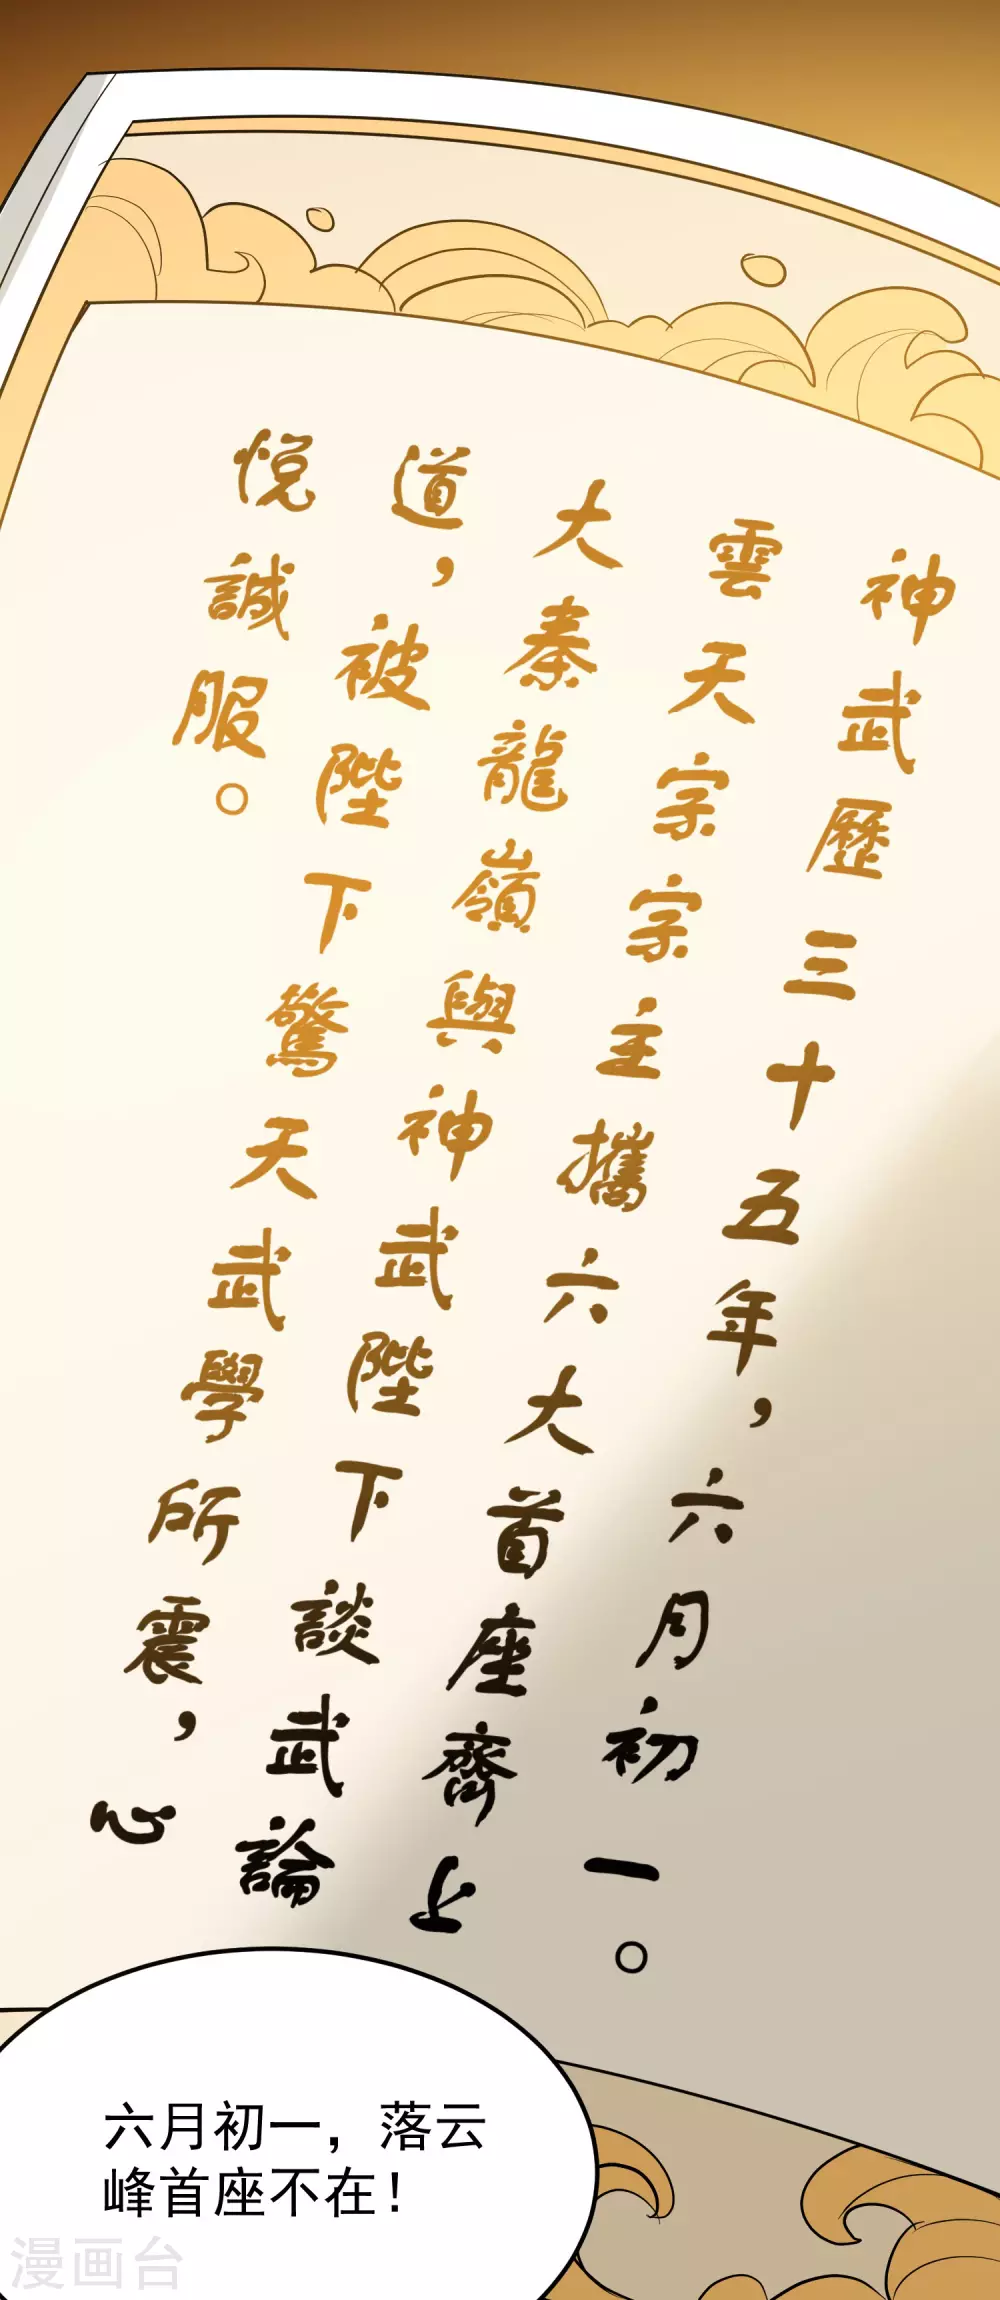 神武歷三十五年，六月初一。
雲天宗宗主攜六大首座齊上
大秦龍嶺與神武陛下談武論
道，被陛下驚天武學所震，心
悅誠服。
六月初一，落云
峰首座不在！
漫画台